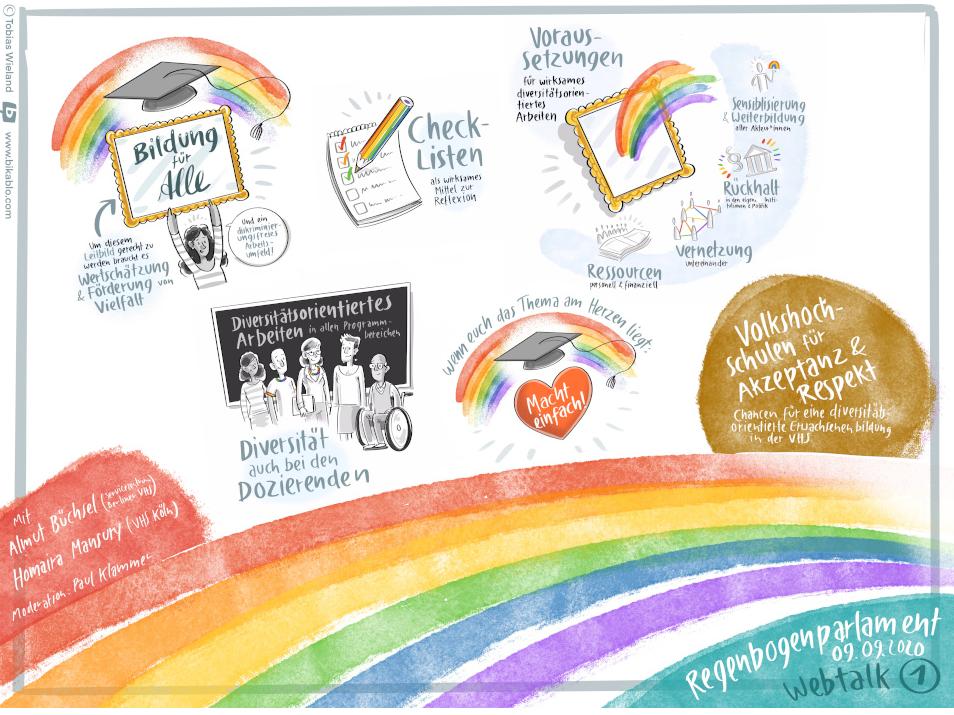 © Tobias Wieland
www.bikablo.com
Bildung
für
Alle
Und ein
diskriminier-
ungsfreies
Arbeits-
umfeld!
Um diesem
Leitbild gerecht zu
werden braucht es
Wertschätzung
& Förderung von
Vielfalt
Check-
Listen
als wirksames
Mittel zur
Reflexion
Voraus-
setzungen
für wirksames
diversitätsorien-
tiertes
Arbeiten
Sensiblisierung
& Weiterbildung
aller Akteur*innen
§
Rückhalt
in den eigen. Insti-
tutionen & Politik
Vernetzung
untereinander
Ressourcen
personell & finanziell
Diversitätsorientiertes
Arbeiten in allen Programm-
bereichen
Diversität
auch bei den
Dozierenden
Wenn euch das Thema am Herzen liegt:
Macht
einfach!
Volkshoch-
schulen für
Akzeptanz &
Respekt
Chancen für eine diversitäts-
orientierte Erwachsenenbildung
in der VHS
Mit
Almut Büchsel (Servicezentrum
Berliner VHS)
Homaira Mansury (VHS Köln)
Moderation: Paul Klammer
Regenbogenparlament
09.09.2020
Webtalk 1